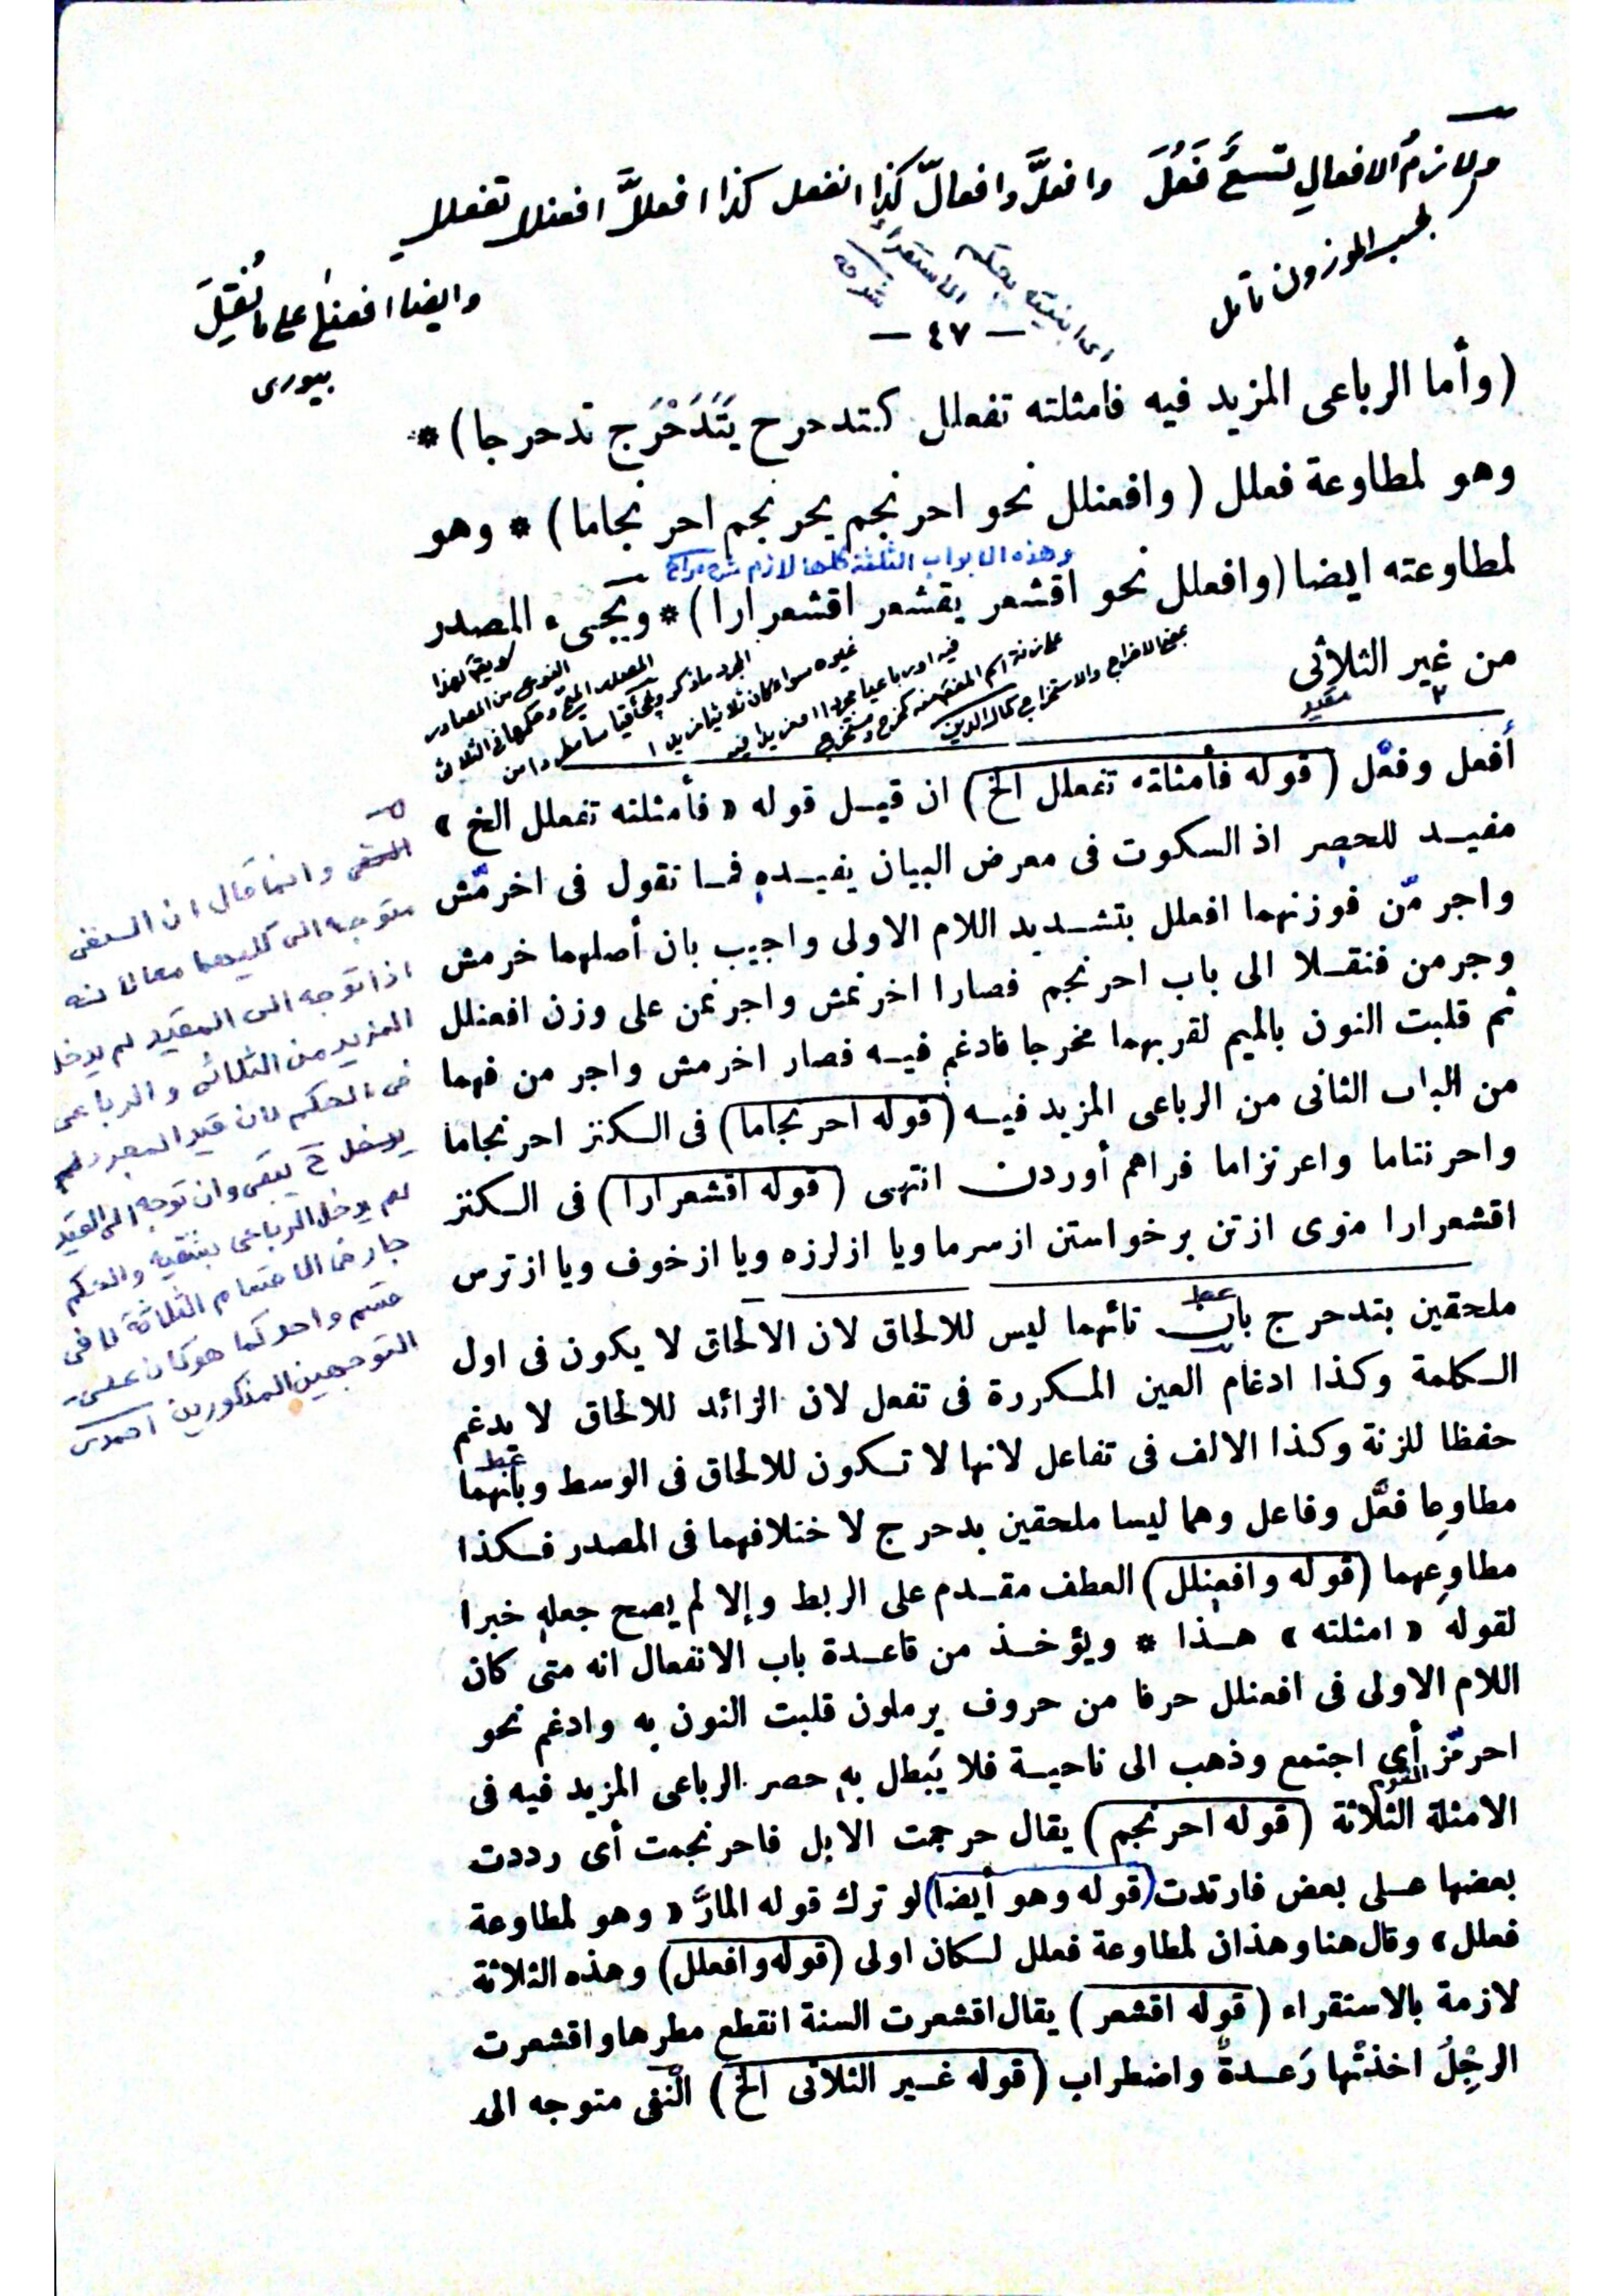 ولازمُ الافعالِ تسعٌ فَعُلَ وافعلَّ وافعالّ كذا انفعل كذا افعللَّ افعنلا تفعلل
بحسب الموزون تأمل
اى ابنيته بحكم
الاستقراء
شرحه
وايضا افعنلٰى على ما نُقِلَ
بيورى
— ٤٧ —
(وأما الرباعى المزيد فيه فامثلته تفعلل كتدحرج يَتَدَحْرَج تدحرجا) *
وهو لمطاوعة فعلل (وافعنلل نحو احرنجم يحرنجم احرنجاما) * وهو
وهذه الابواب الثلثة كلها لازم شرح مراح
لمطاوعته ايضا (وافعلل نحو اقشعر يقشعر اقشعرارا) * ويجىء المصدر
من غير الثلاثى
مقيد
أفعل وفعَّل (قوله فأمثلته تفعلل الخ) ان قيل قوله «فأمثلته تفعلل الخ»
مفيد للحصر اذ السكوت فى معرض البيان يفيده فما نقول فى اخرمّش
واجرمّن فوزنهما افعلل بتشديد اللام الاولى واجيب بان أصلهما خرمش
وجرمن فنقلا الى باب احرنجم فصارا اخرنمش واجرنمن على وزن افعنلل
ثم قلبت النون بالميم لقربهما مخرجا فادغم فيه فصار اخرمش واجرمن فهما
من الباب الثانى من الرباعى المزيد فيه (قوله احرنجاما) فى الكنز احرنجاما
واحرنتاما واعرنزاما فراهم أوردن انتهى (قوله اقشعرارا) فى الكنز
اقشعرارا موى ازتن برخواستن ازسرما ويا ازلرزه ويا ازخوف ويا ازترس
ملحقين بتدحرج بان تائهما ليس للالحاق لان الالحاق لا يكون فى اول
عط
الكلمة وكذا ادغام العين المكررة فى تفعل لان الزائد للالحاق لا يدغم
حفظا للزنة وكذا الالف فى تفاعل لانها لا تكون للالحاق فى الوسط وبانهما
عط
مطاوعا فعَّل وفاعل وهما ليسا ملحقين بدحرج لاختلافهما فى المصدر فكذا
مطاوِعهما (قوله وافعنلل) العطف مقدم على الربط وإلا لم يصح جعله خبرا
لقوله «امثلته» هذا * ويؤخذ من قاعدة باب الانفعال انه متى كان
اللام الاولى فى افعنلل حرفا من حروف يرملون قلبت النون به وادغم نحو
احرمّز أى اجتمع وذهب الى ناحية فلا يَبطل به حصر الرباعى المزيد فيه فى
الامثلة الثلاثة (قوله احرنجم) يقال حرجمت الابل فاحرنجمت أى رددت
بعضها على بعض فارتدت (قوله وهو أيضا) لو ترك قوله المارَّ «وهو لمطاوعة
فعلل» وقال هنا وهذان لمطاوعة فعلل لكان اولى (قوله وافعلل) وهذه الثلاثة
لازمة بالاستقراء (قوله اقشعر) يقال اقشعرت السنة انقطع مطرها واقشعرت
الرِجْلُ اخذتْها رَعدةٌ واضطراب (قوله غير الثلاثى الخ) النّفى متوجه الى
وانما قال ان النفى
متوجه الى كليهما معا لانه
اذا توجه الى المقيد لم يدخل
المزيد من الثلاثى والرباعى
فى الحكم لان قيد المجرد لم
يدخل ح يبقى وان توجه الى القيد
لم يدخل الرباعى بقسميه والحكم
جار فى الاقسام الثلاثة لا فى
قسم واحد كما هو كان على
التوجهين المذكورين احمدى